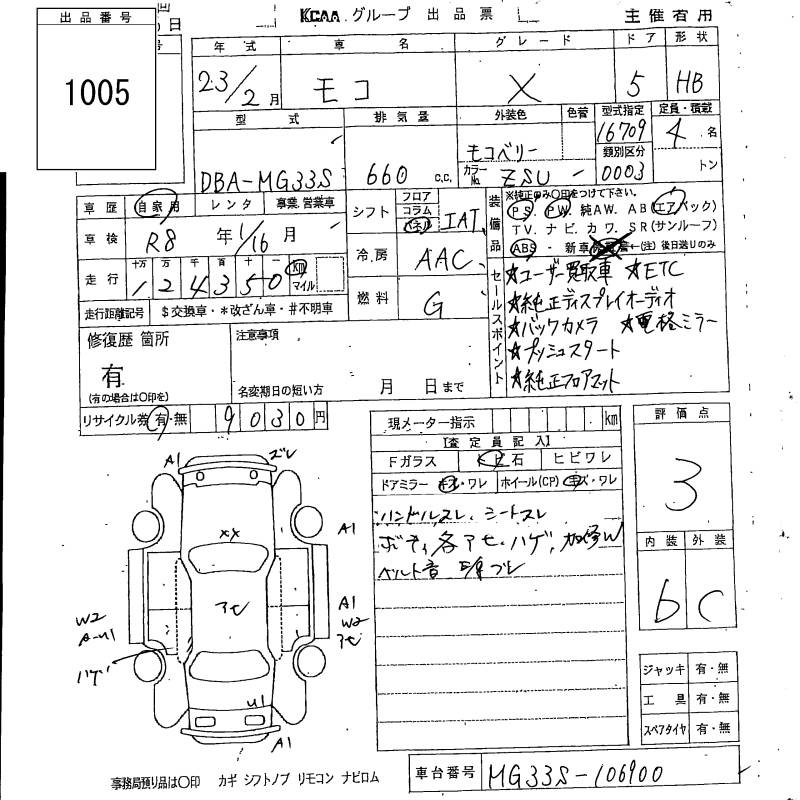 出品番号
1005
KCAA グループ 出品票
主催者用
年式 車名 グレード ドア 形状
23/2月 モコ X 5 HB
型式 排気量 外装色 色替 型式指定 定員・積載
DBA-MG33S 660 c.c. モコベリー 16709 4名
カラーNo. ZSU 類別区分 0003 トン
車歴 自家用 レンタ 事業.営業車
車検 R8年 1/16月
走行 十万 万 千 百 十 一 km マイル
124350
走行距離記号 $交換車・*改ざん車・#不明車
シフト フロア コラム パネル IAT
冷房 AAC
燃料 G
装備品 ※純正のみ○印をつけて下さい。
PS. PW. 純AW. AB(エアバック)
TV. ナビ. カワ. SR(サンルーフ)
ABS ・ 新車 ←(注) 後日送りのみ
セールスポイント
☆ユーザー買取車 ☆ETC
☆純正ディスプレイオーディオ
☆バックカメラ ☆電格ミラー
☆プッシュスタート
☆純正フロアマット
修復歴 箇所
有
(有の場合は○印を)
注意事項
名変期日の短い方 月 日まで
リサイクル券 有・無 9030円
現メーター指示 km
【査定員記入】
Fガラス トビ石 ヒビワレ
ドアミラー キズ・ワレ ホイール(CP) キズ・ワレ
ハンドルスレ、シートスレ
ボディ各アセ・ハゲ、
ベルト音
評価点
3
内装 外装
b C
ジャッキ 有・無
工具 有・無
スペアタイヤ 有・無
A1 ズレ
XX
A1
アセ
A1
W2
アセ
W2
A-U1
ハゲ
U1
A1
事務局預り品は○印 カギ シフトノブ リモコン ナビロム
車台番号 MG33S-106900